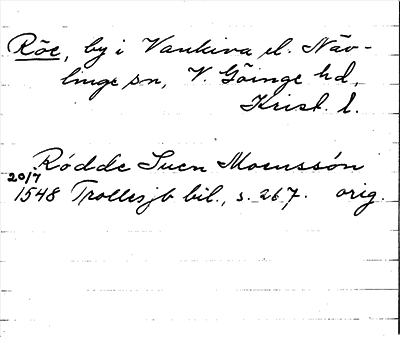 Röe, by i Vankiva el. Näv-
linge sn, V. Göinge hd,
Krist. l.
Rödde Suen Monssön
20/7
1548 Trollesjb bil., s. 267. orig.